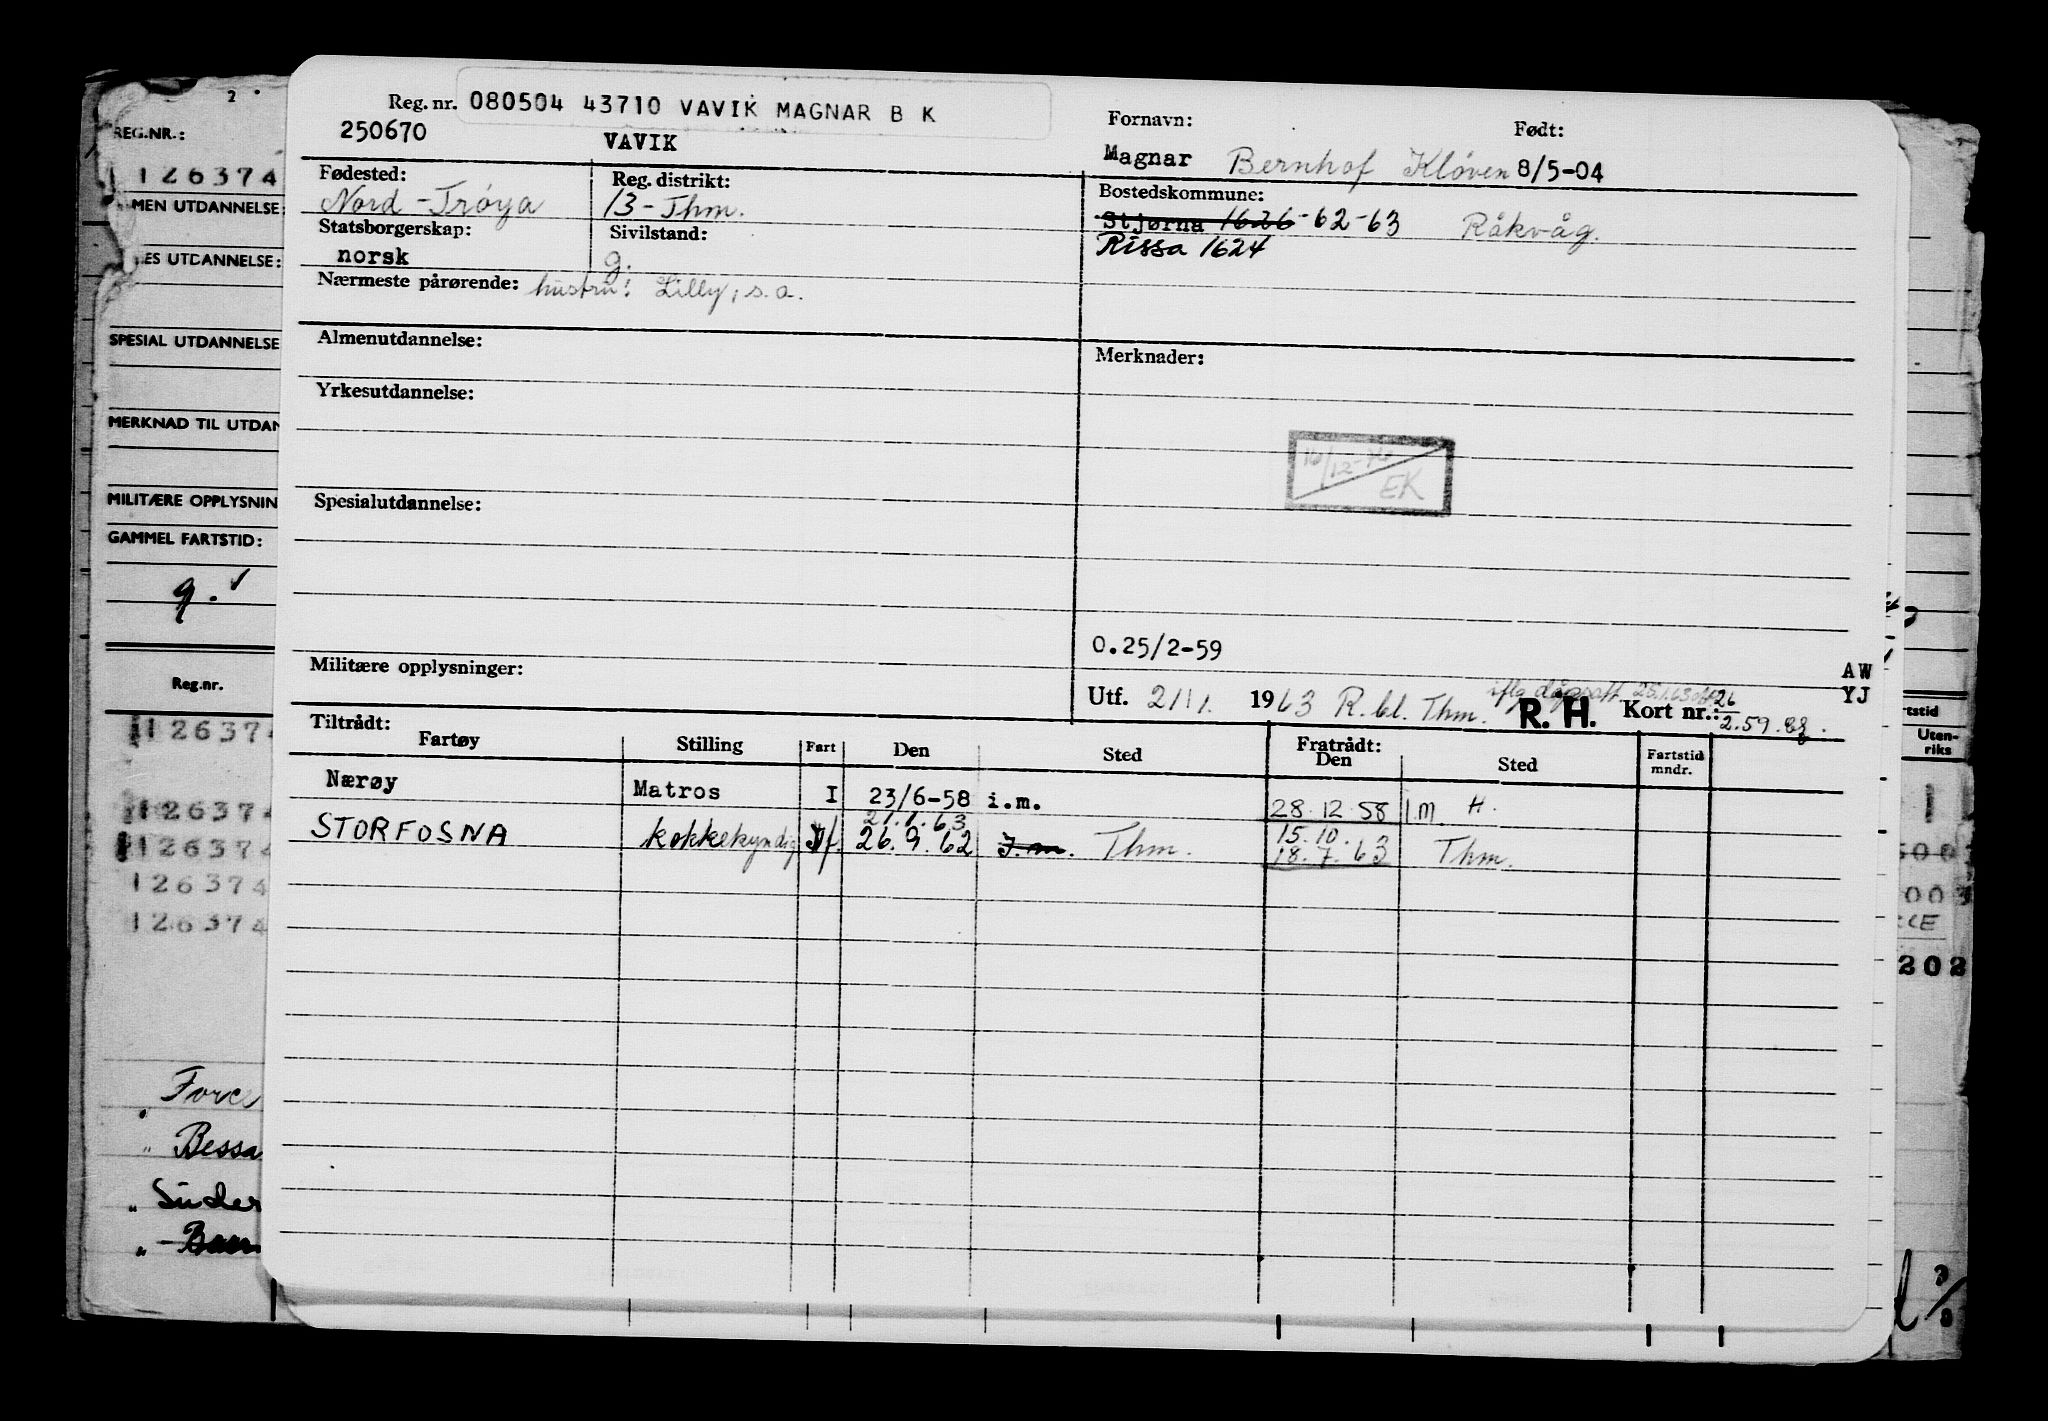 2
REG.NR.:
126374
MEN UTDANNELSE:
ES UTDANNELSE:
SPESIAL UTDANNELSE
MERKNAD TIL UTDAN
MILITÆRE OPPLYSNIN
GAMMEL FARTSTID:
g. ✓
Reg.nr.
126374
126374
126374
126374
126374
Force
" Bessa
" Suder
"
Reg. nr. 080504 43710 VAVIK MAGNAR B K
250670 VAVIK
Fornavn: Født:
Magnar Bernhof Kløven 8/5-04
Fødested: Reg. distrikt: Bostedskommune:
Nord-Trøya 13-Thm. Stjørna 1626-62-63 Råkvåg.
Statsborgerskap: Sivilstand: Rissa 1624
norsk g.
Nærmeste pårørende: hustru: Lilly, s.a.
Almenutdannelse: Merknader:
Yrkesutdannelse:
EK
Spesialutdannelse:
0.25/2-59
Militære opplysninger: AW
Utf. 21/1. 1963 R.bl. Thm. R. H. Kort nr.: 26 YJ
2.59.
Tiltrådt: Fratrådt:
Fartøy Stilling Fart Den Sted Den Sted Fartstid mndr.
Nærøy Matros I 23/6-58 i.m. 28.12.58 I.M H.
21.1.63 15.10.
STORFOSNA kokkekyndig 26.9.62 I.m. Thm. 18.7.63 Thm.
rtstid
Uten-
riks
1
003
202